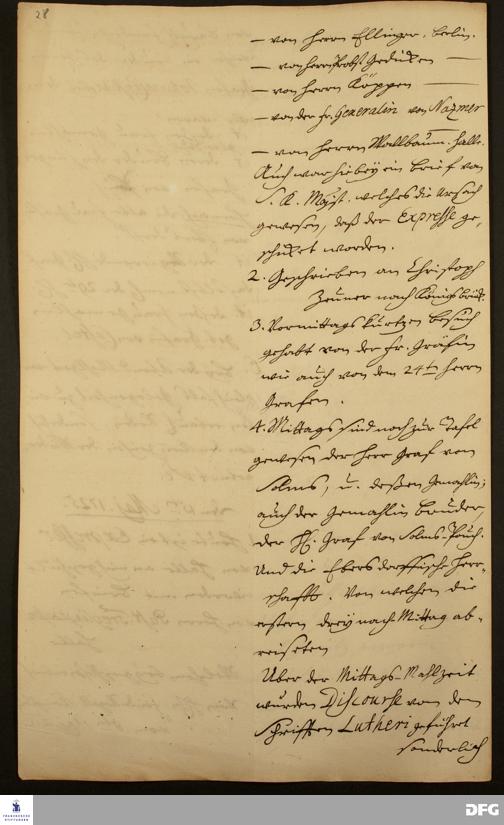 28
— von Herrn Ellinger. Berlin.
— von Herrn Probst Gedicken —
— von Herrn Köppen —
— von der Fr. Generalin von Nazmer
— von Herrn Wallbaum. Halle.
Auch war hiebey ein Brief von
S. K. Majst. welches die Ursach
gewesen, daß der Expresse ge-
schicket worden.
2. Geschrieben an Christoph
Zeuner nach Königsbrück.
3. Vormittags kurtzen Besuch
gehabt von der Fr. Gräfin
wie auch von dem 24ten Herrn
Grafen.
4. Mittags sind noch zur Tafel
gewesen der Herr Graf von
Solms, u. deßen Gemahlin;
auch der Gemahlin Brüder,
der H. Graf von Solms-Pouch.
Und die Ebersdorffische Herr-
schafft. Von welchen die
erstern drey nach Mittag ab-
reiseten
Uber der Mittags-Mahlzeit
wurden Discourse von den
Schrifften Lutheri geführt
sonderlich
FRANCKESCHE STIFTUNGEN
DFG